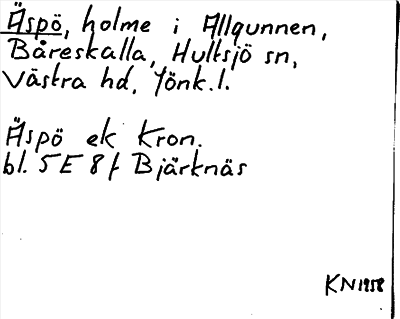 Äspö, holme i Allgunnen,
Båreskalla, Hultsjö sn,
Västra hd, Jönk.l.
Äspö ek Kron.
bl. 5 E 8 f Bjärknäs
KN 1958